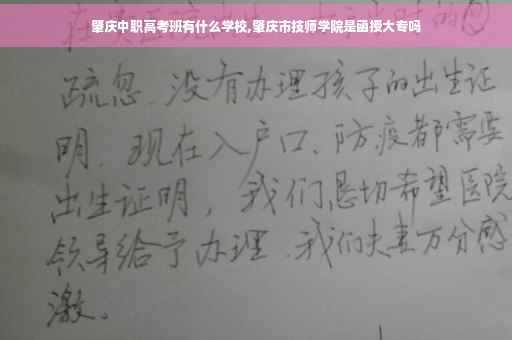 肇庆中职高考班有什么学校,肇庆市技师学院是函授大专吗
疏忽、没有办理孩子的出生证
明、现在入户口、防疫都需要
出生证明，我们恳切希望医院
领导给予办理、我们夫妻万分感
激。